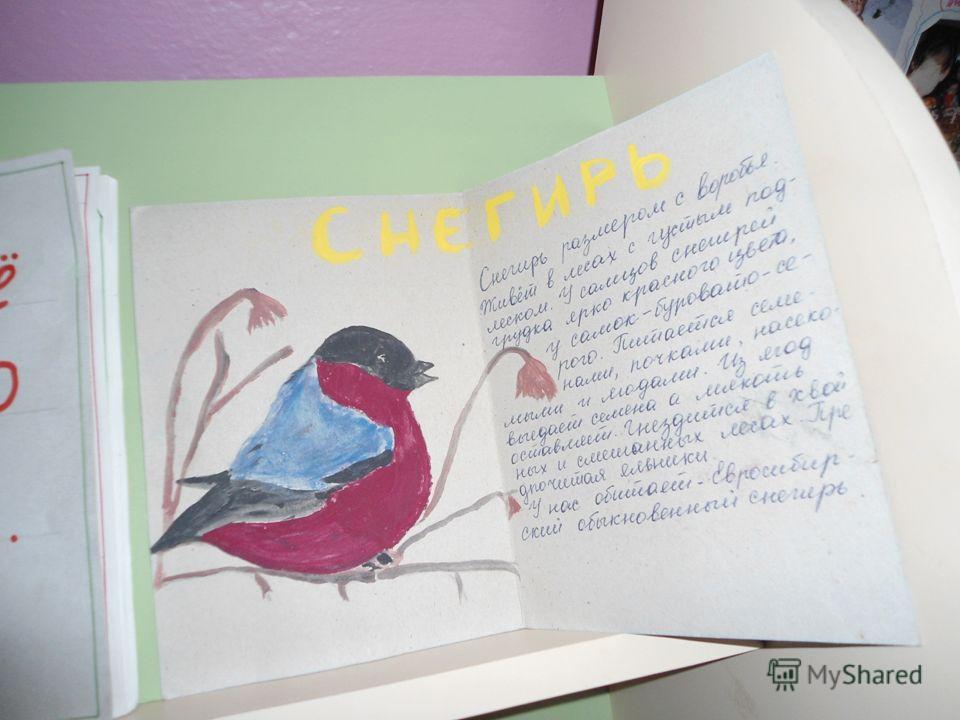 СНЕГИРЬ
Снегирь размером с воробья.
Живёт в лесах с густым под-
леском. У самцов снегирей
грудка ярко красного цвета,
у самок - буровато-се-
рого. Питается семе-
нами, почками, насеко-
мыми и ягодами. Из ягод
выедает семена а мякоть
оставляет. Гнездится в хвой
ных и смешанных лесах. Пре
дпочитая ельники.
У нас обитает - Евросибир-
ский обыкновенный снегирь.
MyShared